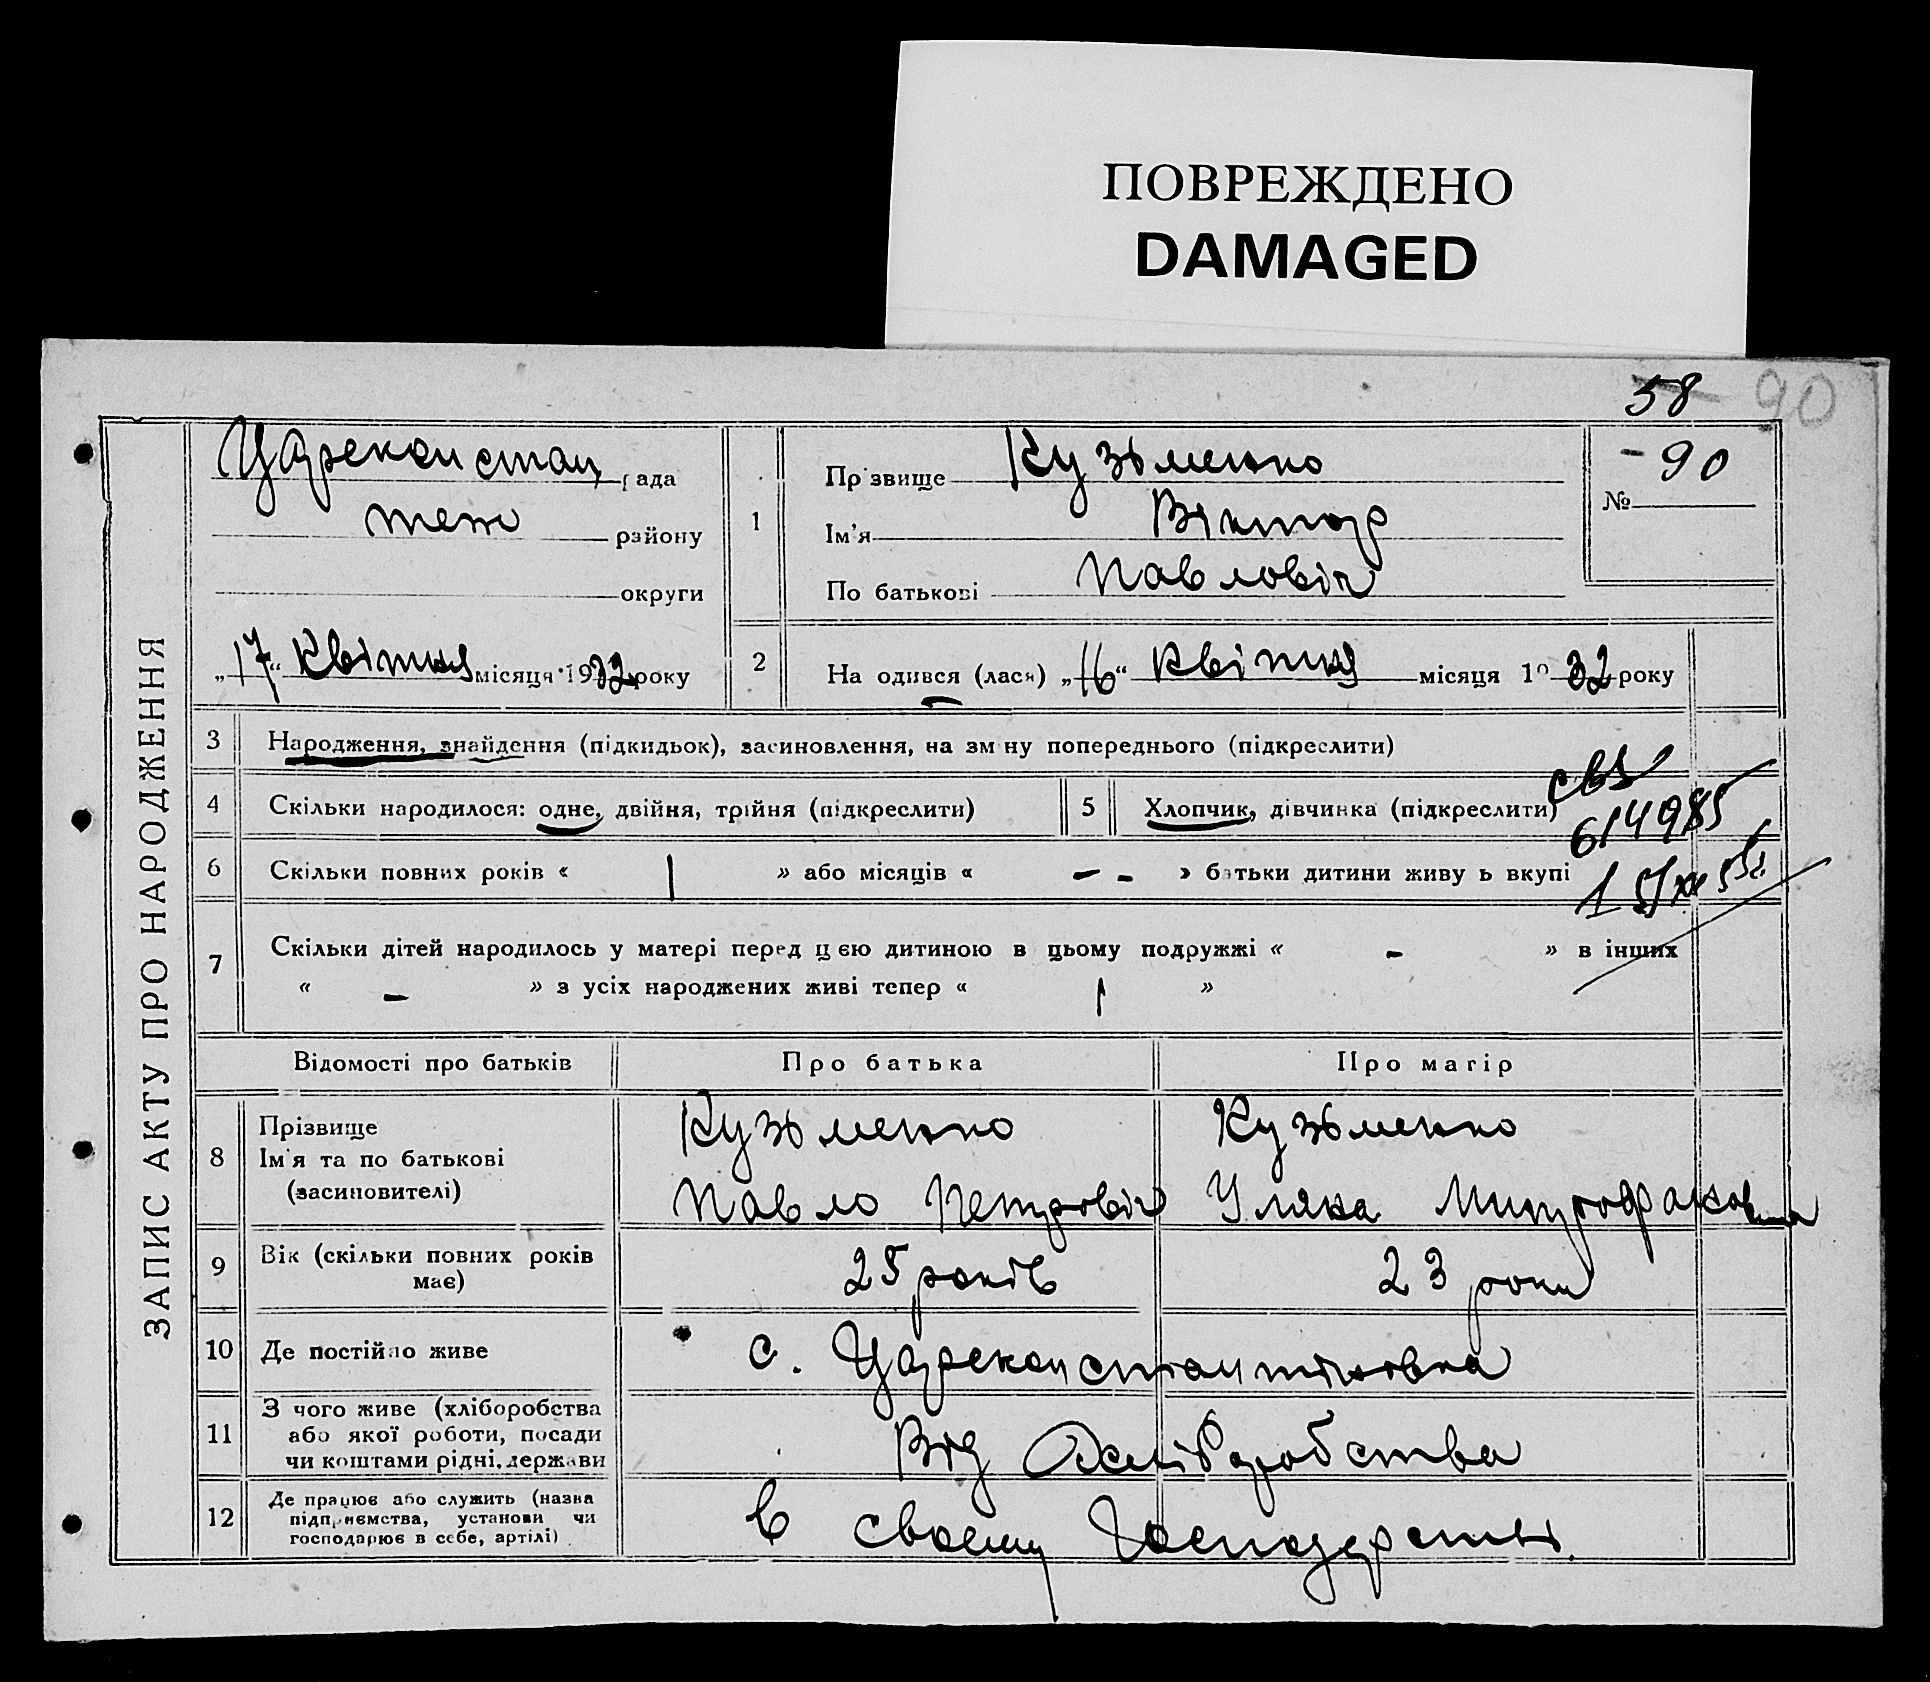 ПОВРЕЖДЕНО
DAMAGED
58 90
ЗАПИС АКТУ ПРО НАРОДЖЕННЯ
Цареконстан, рада
теж району
округи
„17“ квітня місяця 1932 року
1
Прізвище Кузьменко
Ім'я Віктор
По батькові Павловіч
№ 90
2
На одився (лася) „16“ квітня місяця 1932 року
3 Народження, знайдення (підкидьок), засиновлення, на зм ну попереднього (підкреслити)
4 Скільки народилося: одне, двійня, трійня (підкреслити)
5 Хлопчик, дівчинка (підкреслити)
614985
6 Скільки повних років « 1 » або місяців « - - » батьки дитини живу ь вкупі
7 Скільки дітей народилось у матері перед цією дитиною в цьому подружжі « - » в інших
« - » з усіх народжених живі тепер « 1 »
Відомості про батьків
Про батька
Про матір
8 Прізвище
Ім'я та по батькові
(засиновителі)
Кузьменко
Павло Петровіч
Кузьменко
Уляна Митрофановна
9 Вік (скільки повних років
має)
25 років
23 роки
10 Де постійно живе
с. Цареконстантіновка
11 З чого живе (хліборобства
або якої роботи, посади
чи коштами рідні, держави
Від Хліборобства
12 Де працює або служить (назва
підприємства, установи чи
господарює в себе, артілі)
в своєму Господарстві.